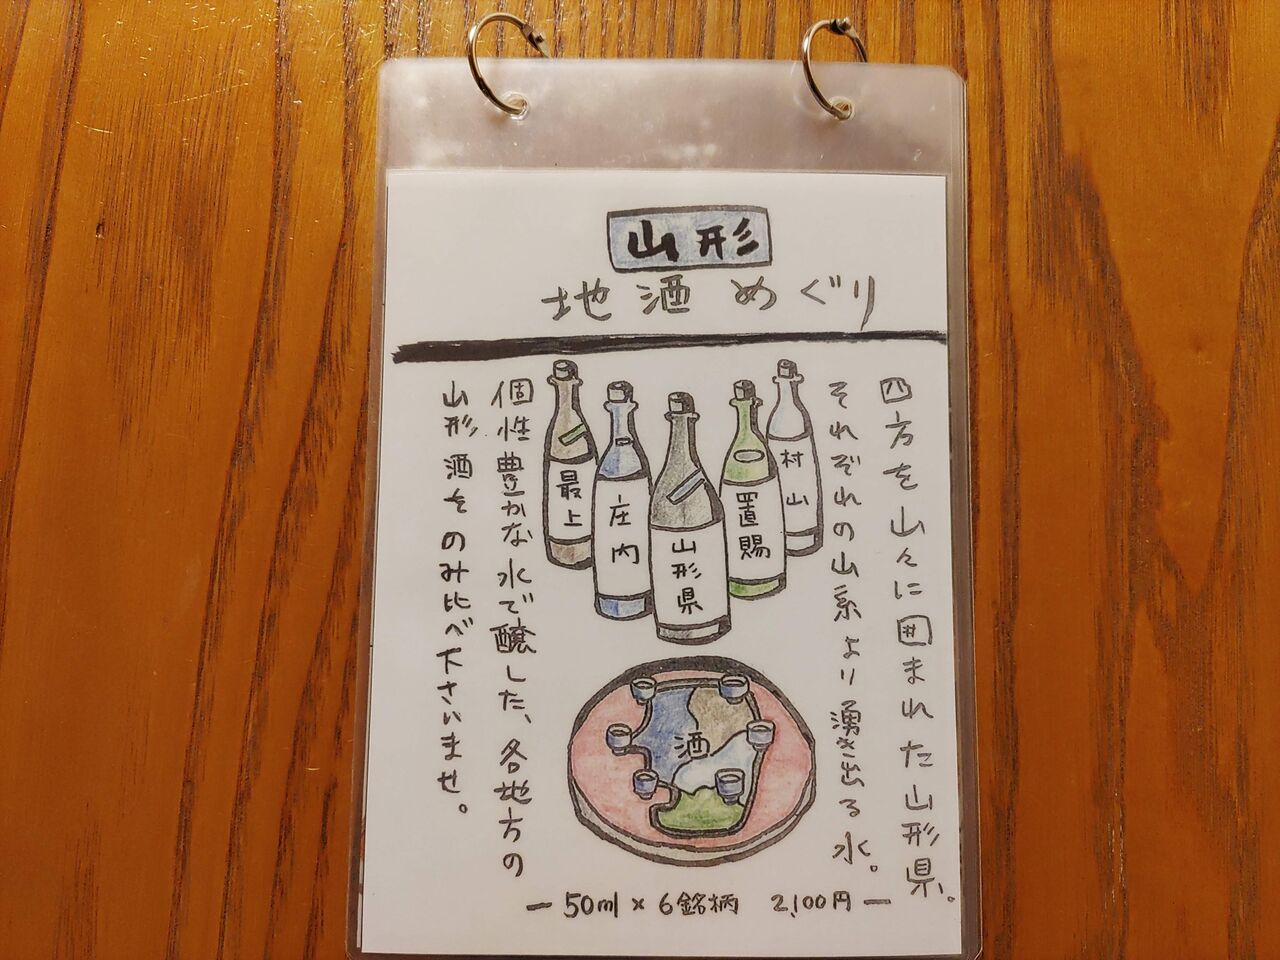 山形
地酒めぐり
四方を山々に囲まれた山形県。
それぞれの山系より湧き出る水。
個性豊かな水で醸した、各地方の
山形酒をのみ比べ下さいませ。
最上
庄内
山形県
置賜
村山
酒
ー 50ml × 6銘柄 2,100円 ー